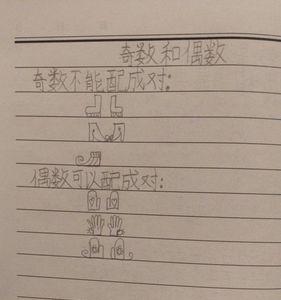 奇数和偶数
奇数不能配成对:
偶数可以配成对: